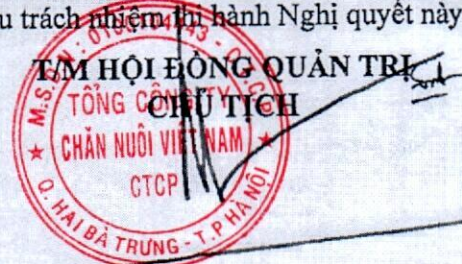 u trách nhiệm thi hành Nghị quyết này
T/M HỘI ĐỒNG QUẢN TRỊ
CHỦ TỊCH
TỔNG CÔNG TY
CHĂN NUÔI VIỆT NAM
CTCP
Q. HAI BÀ TRƯNG - T.P HÀ NỘI